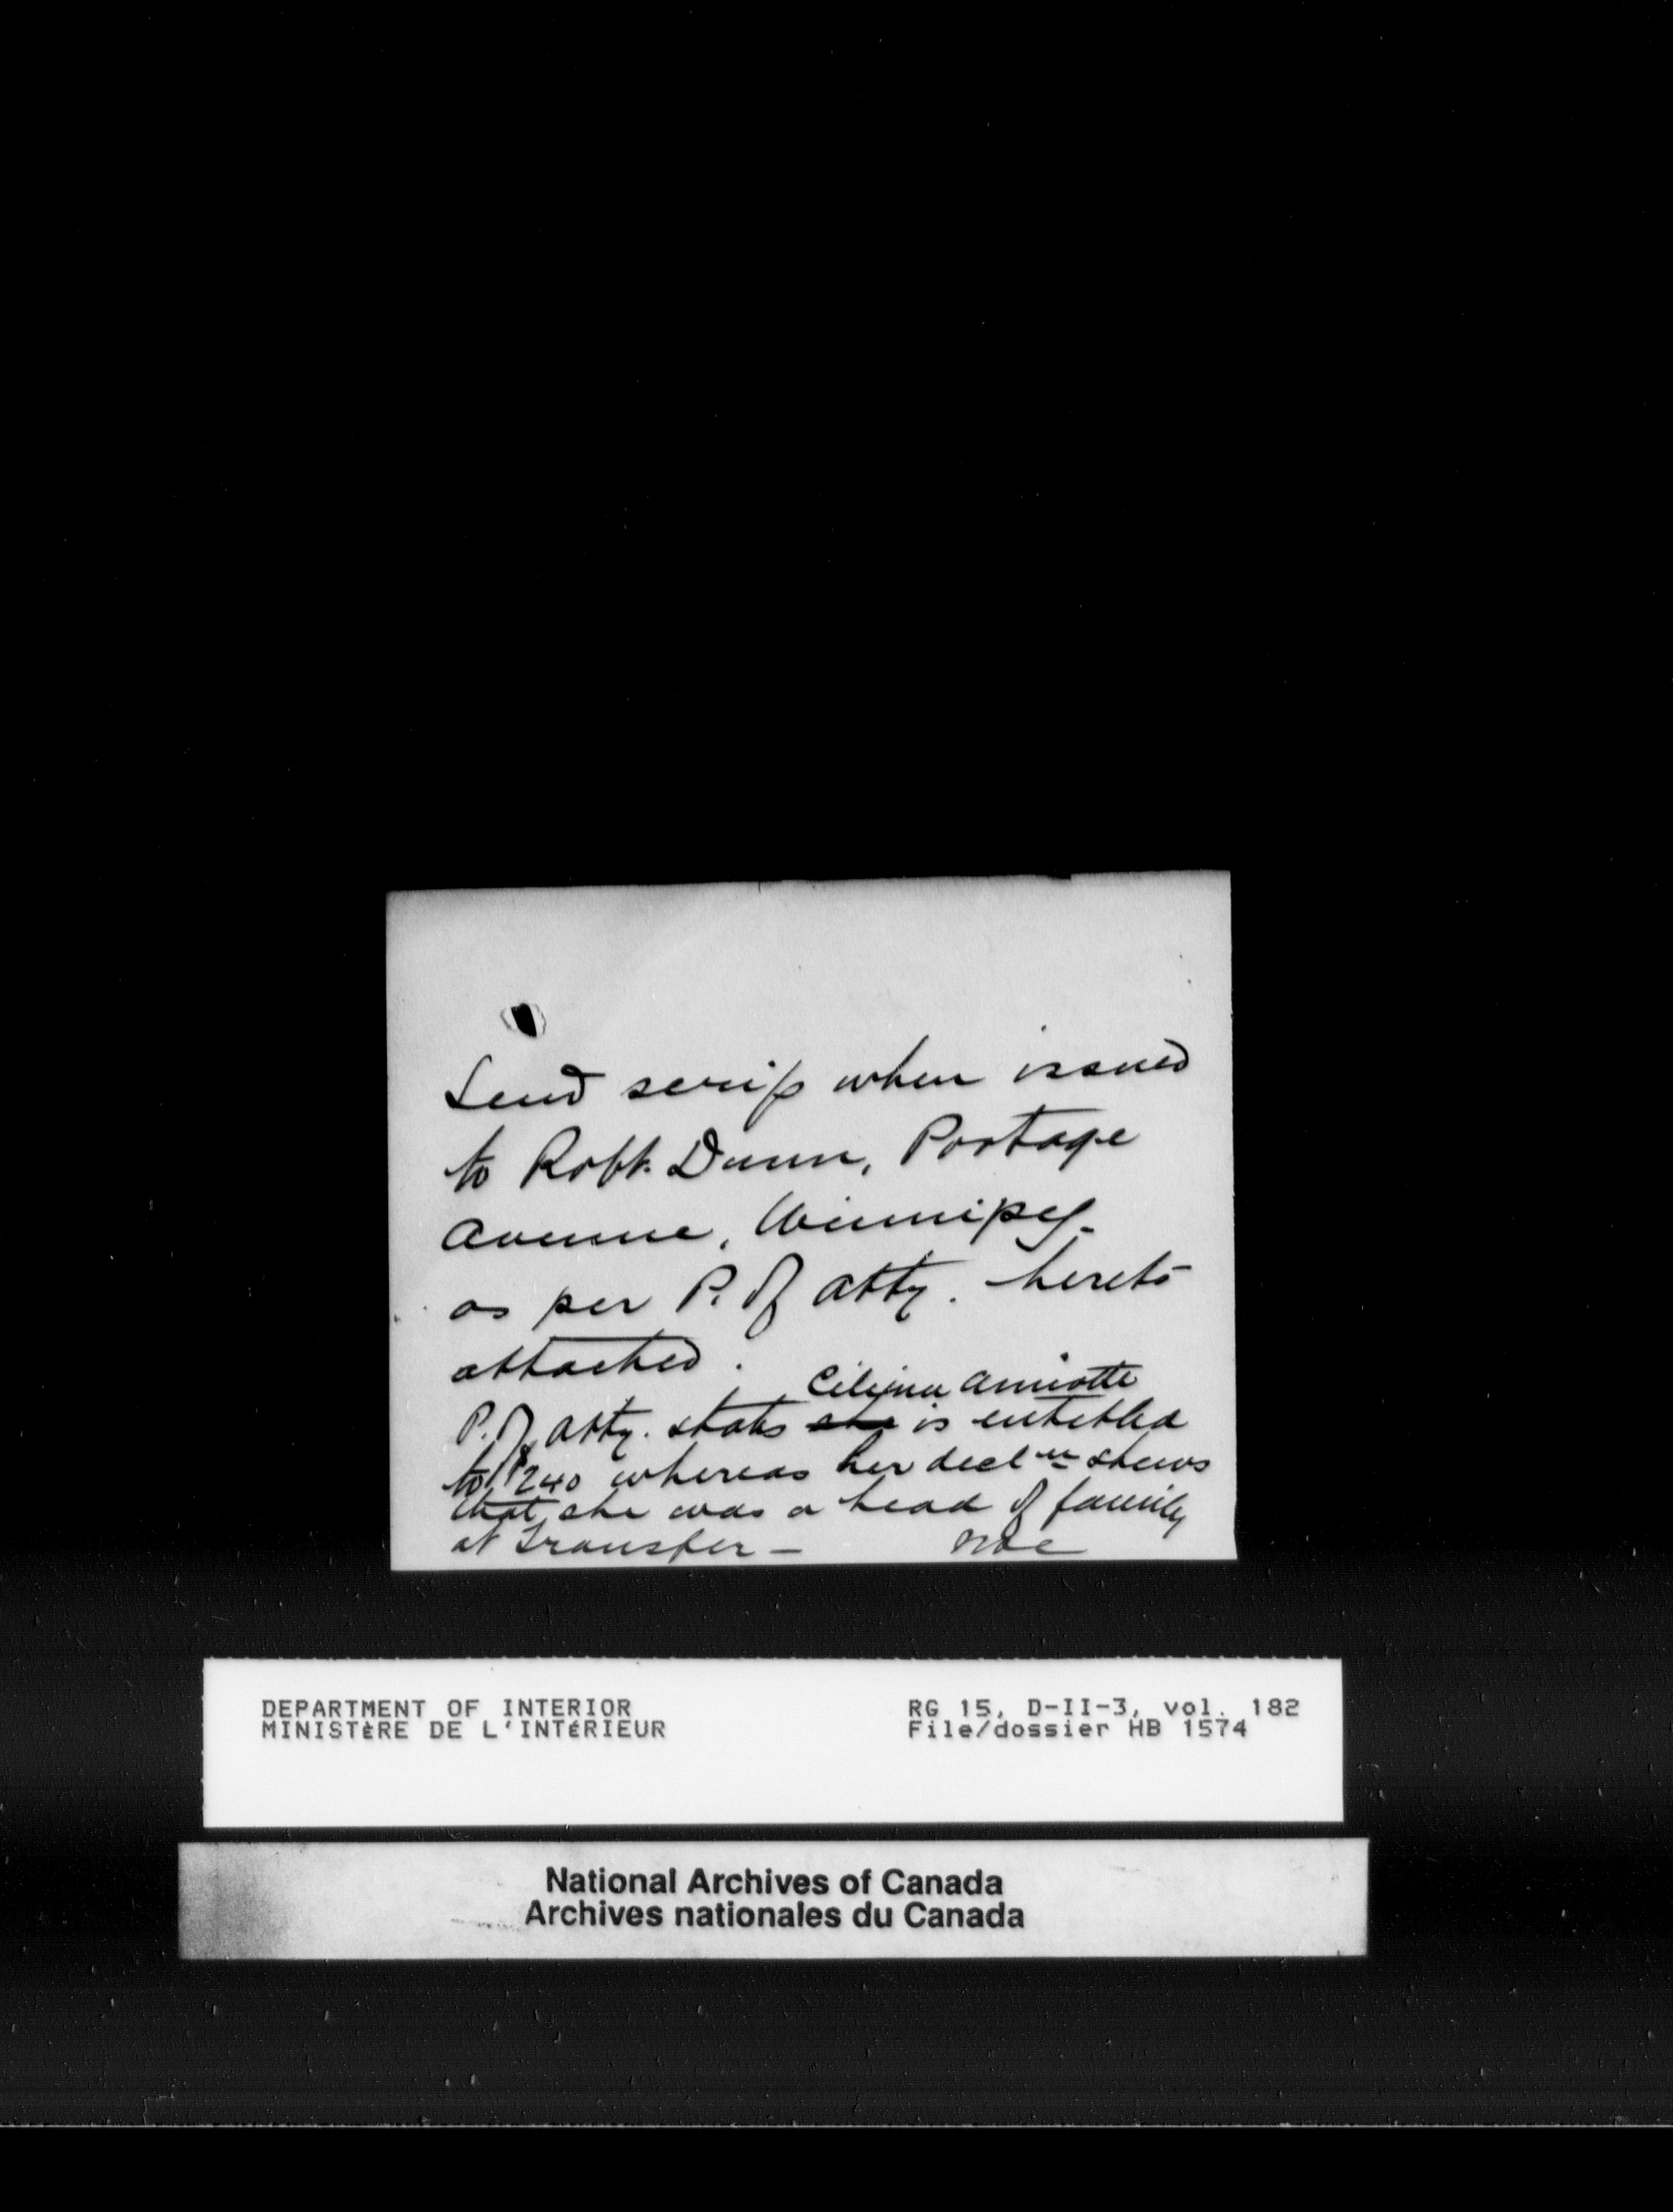 Send scrip when issued
to Robt. Dunn, Portage
Avenue, Winnipeg.
as per P. of atty. hereto
attached.
Amiotte
P. of atty. states she is entitled
to $240 whereas her decln shews
that she was a head of family
at Transfer -
DEPARTMENT OF INTERIOR
MINISTÈRE DE L'INTÉRIEUR
RG 15, D-II-3, vol. 182
File/dossier HB 1574
National Archives of Canada
Archives nationales du Canada